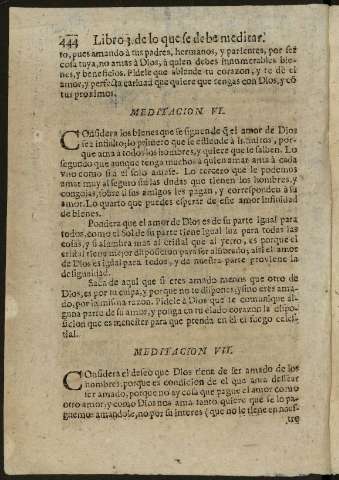 444 Libro 3. de lo que se debe meditar.
to, pues amando à tus padres, hermanos, y parientes, por ser
cosa tuya, no amas à Dios, à quien debes innumerables bie-
nes, y beneficios. Pidele que ablande tu corazon, y te dè el
amor, y perfecta caridad que quiere que tengas con Dios, y cõ
tus proximos.
MEDITACION VI.
COnsidera los bienes que se siguen de q̃ el amor de Dios
sea infinito; lo primero que se estiende à infinitos, por-
que ama à todos los hombres, y quiere que se salben. Lo
segundo que aunque tenga muchos à quien amar ama à cada
vno como si à el solo amase. Lo tercero que le podemos
amar muy al seguro sin las dudas que tienen los hombres, y
congojas, sobre si sus amigos les pagan, y corresponden à su
amor. Lo quarto que puedes esperar de este amor infinidad
de bienes.
Pondera que el amor de Dios es de su parte igual para
todos, como el Sol de su parte tiene igual luz para todas las
cosas, y si alumbra mas al cristal que al yerro, es porque el
cristal tiene mejor disposicion para ser alumbrado; asi el amor
de Dios es igual para todos, y de nuestra parte proviene la
desigualdad.
Saca de aqui que si eres amado menos que otro de
Dios, es por tu culpa, y porque no te dispones, y sino eres ama-
do, por la misma razon. Pidele à Dios que te comunique al-
guna parte de su amor, y ponga en tu elado corazon la dispo-
sicion que es menester para que prenda en èl el fuego celes-
tial.
MEDITACION VII.
COnsidera el deseo que Dios tiene de ser amado de los
hombres, porque es condicion de el que ama desear
ser amado, porque no ay cosa que pague el amor como
otro amor; y como Dios nos ama tanto, quiere que se lo pa-
guemos amandole, no por su interes (que no le tiene en nues-